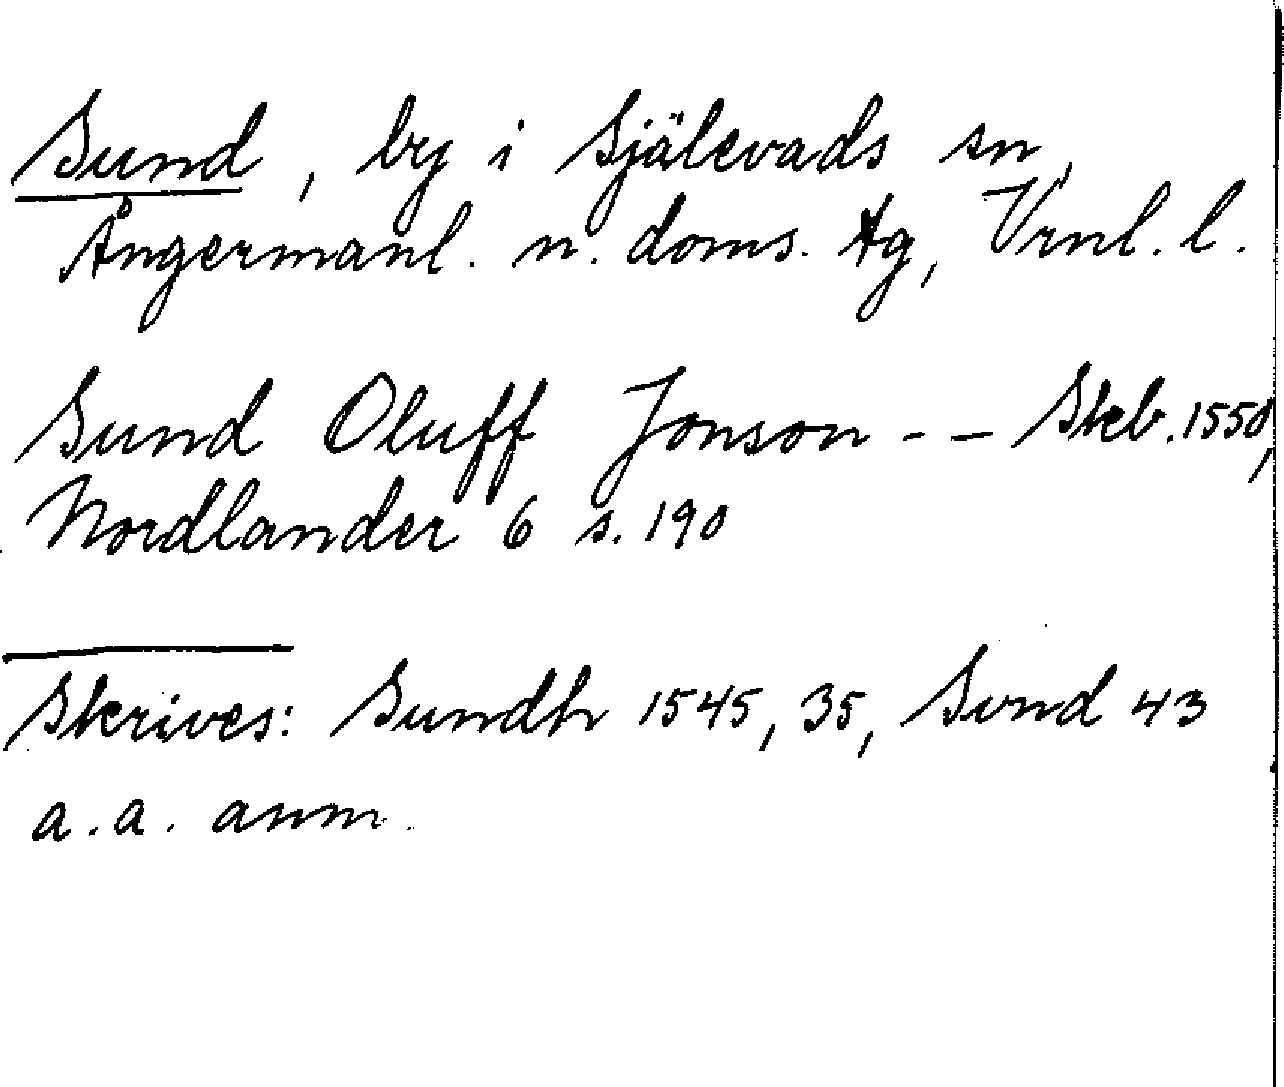 Sund, by i Själevads sn,
Ångermanl. n. doms. tg, Vrnl. l.
Sund Oluff Jonson - - Skb. 1550,
Nordlander 6 s. 190
Skrives: Sundh 1545, 35, Svnd 43
a. a. anm.